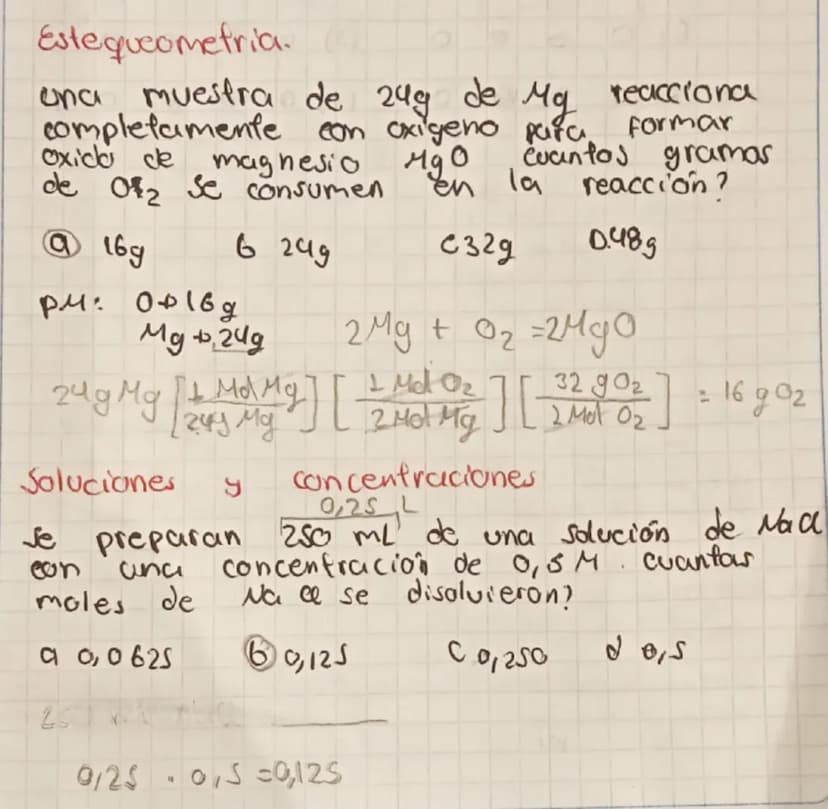 Estequeometria.
una muestra de 24g de Mg reacciona
completamente con oxigeno para formar
oxido de magnesio MgO cuantos gramos
de O2 se consumen en la reacción?
a 16g b 24g c 32g D.48g
PM: O→16g
Mg→24g 2Mg + O2 =2MgO
24g Mg [1 Mol Mg / 24g Mg] [1 Mol O2 / 2 Mol Mg] [32 gO2 / 1 Mol O2] = 16 gO2
Soluciones y concentraciones
0,25 L
se preparan 250 mL de una solución de NaCl
con una concentración de 0,5 M. cuantas
moles de Na Cl se disolvieron?
a 0,0625 b 0,125 c 0,250 d 0,5
0,25 . 0,5 =0,125